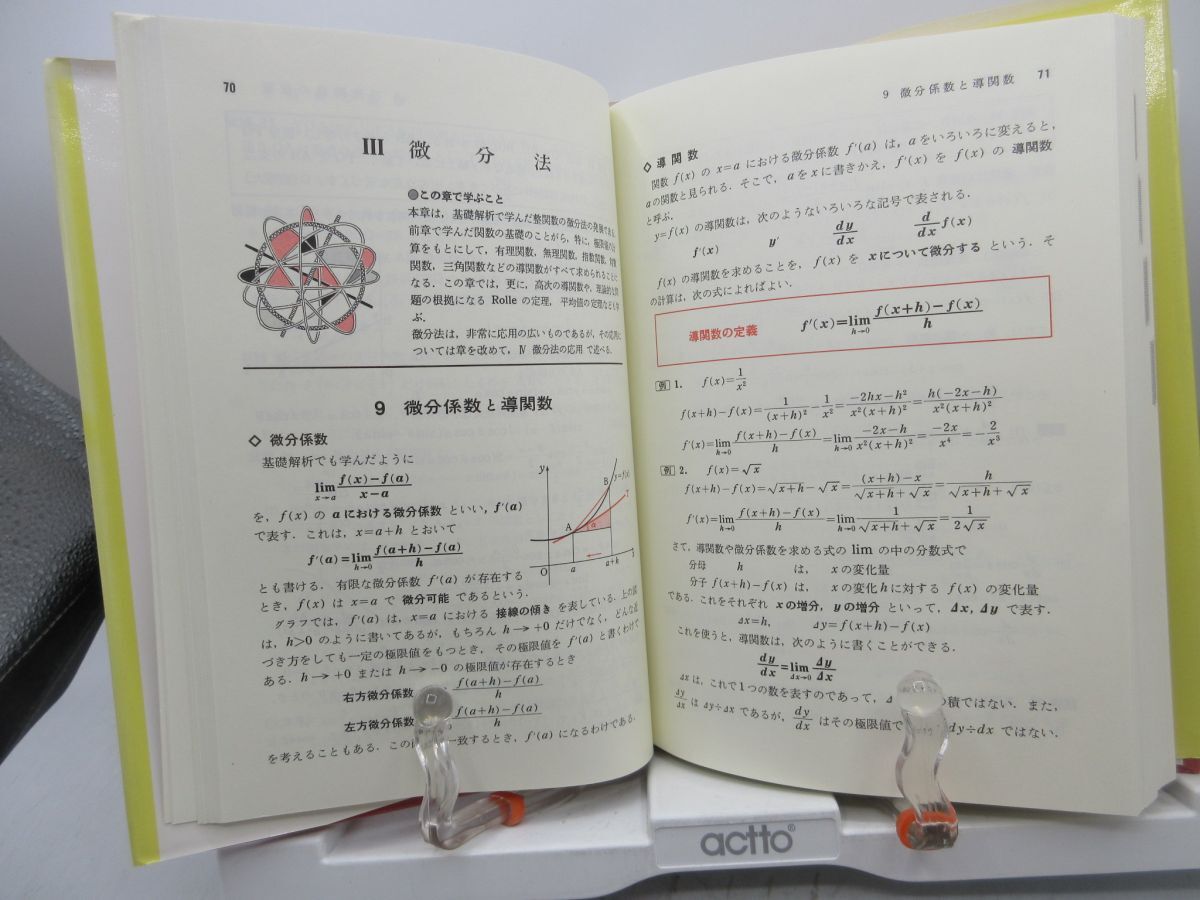 70
III 微分法
●この章で学ぶこと
本章は,基礎解析で学んだ整関数の微分法の発展である.
前章で学んだ関数の基礎のことがら,特に,極限値の計
算をもとにして,有理関数,無理関数,指数関数,対数
関数,三角関数などの導関数がすべて求められることに
なる.この章では,更に,高次の導関数や,理論的な問
題の根拠になる Rolle の定理,平均値の定理なども学
ぶ.
微分法は,非常に応用の広いものであるが,その応用に
ついては章を改めて,Ⅳ 微分法の応用 で述べる.
9 微分係数と導関数
◇ 微分係数
基礎解析でも学んだように
lim x→a (f(x)−f(a))/(x−a)
を,f(x) の a における微分係数 といい,f′(a)
で表す.これは,x=a+h とおいて
f′(a)=lim h→0 (f(a+h)−f(a))/h
とも書ける.有限な微分係数 f′(a) が存在する
とき,f(x) は x=a で 微分可能 であるという.
グラフでは,f′(a) は,x=a における 接線の傾き を表している.上の図
は,h>0 のように書いてあるが,もちろん h→+0 だけでなく,どんな近
づき方をしても一定の極限値をもつとき,その極限値を f′(a) と書くわけで
ある.h→+0 または h→−0 の極限値が存在するとき
右方微分係数 (f(a+h)−f(a))/h
左方微分係数 (f(a+h)−f(a))/h
を考えることもある.この 一致するとき,f′(a) になるわけである.
y
y=f(x)
B
T
A
α
O
a
a+h
x
9 微分係数と導関数 71
◇ 導関数
関数 f(x) の x=a における微分係数 f′(a) は,a をいろいろに変えると,
a の関数と見られる.そこで,a を x に書きかえ,f′(x) を f(x) の 導関数
と呼ぶ.
y=f(x) の導関数は,次のようないろいろな記号で表される.
f′(x) y′ dy/dx d/dx f(x)
f(x) の導関数を求めることを,f(x) を xについて微分する という.そ
の計算は,次の式によればよい.
導関数の定義 f′(x)=lim h→0 (f(x+h)−f(x))/h
例 1. f(x)=1/x²
f(x+h)−f(x)=1/(x+h)²−1/x²=(−2hx−h²)/(x²(x+h)²)=h(−2x−h)/(x²(x+h)²)
f′(x)=lim h→0 (f(x+h)−f(x))/h=lim h→0 (−2x−h)/(x²(x+h)²)=−2x/x⁴=−2/x³
例 2. f(x)=√x
f(x+h)−f(x)=√(x+h)−√x=((x+h)−x)/(√(x+h)+√x)=h/(√(x+h)+√x)
f′(x)=lim h→0 (f(x+h)−f(x))/h=lim h→0 1/(√(x+h)+√x)=1/(2√x)
さて,導関数や微分係数を求める式の lim の中の分数式で
分母 h は, x の変化量
分子 f(x+h)−f(x) は, x の変化 h に対する f(x) の変化量
である.これをそれぞれ xの増分,yの増分 といって,Δx,Δy で表す.
Δx=h, Δy=f(x+h)−f(x)
これを使うと,導関数は,次のように書くことができる.
dy/dx=lim Δx→0 Δy/Δx
Δx は,これで1つの数を表すのであって,Δ の積ではない.また,
Δy/Δx は Δy÷Δx であるが,dy/dx はその極限値で dy÷dx ではない.
actto®